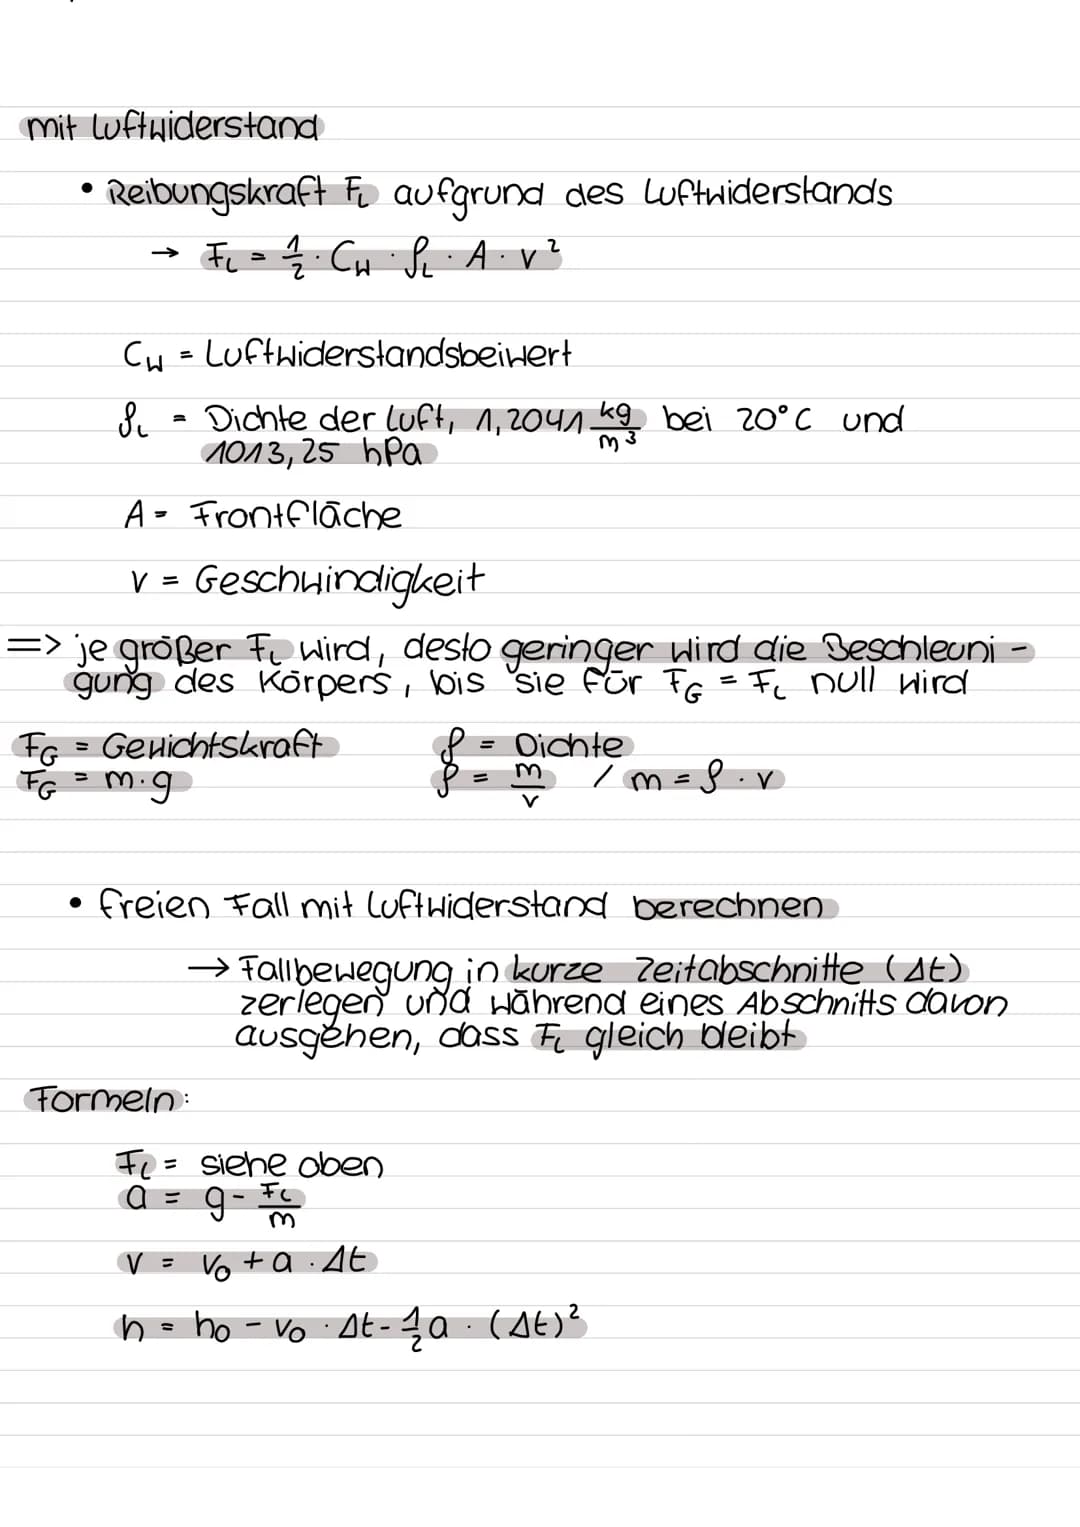 mit Luftwiderstand
• Reibungskraft F_L aufgrund des Luftwiderstands
→ F_L = 1/2 · C_W · ρ_L · A · v²
C_W = Luftwiderstandsbeiwert
ρ_L = Dichte der Luft, 1,2041 kg/m³ bei 20°C und
1013,25 hPa
A = Frontfläche
v = Geschwindigkeit
=> je größer F_L wird, desto geringer wird die Beschleuni-
gung des Körpers, bis sie für F_G = F_L null wird
F_G = Gewichtskraft ρ = Dichte
F_G = m·g ρ = m/v / m = ρ · v
• freien Fall mit Luftwiderstand berechnen
→ Fallbewegung in kurze Zeitabschnitte (Δt)
zerlegen und während eines Abschnitts davon
ausgehen, dass F_L gleich bleibt
Formeln:
F_L = siehe oben
a = g - F_L/m
v = v₀ + a · Δt
h = h₀ - v₀ · Δt - 1/2 a · (Δt)²